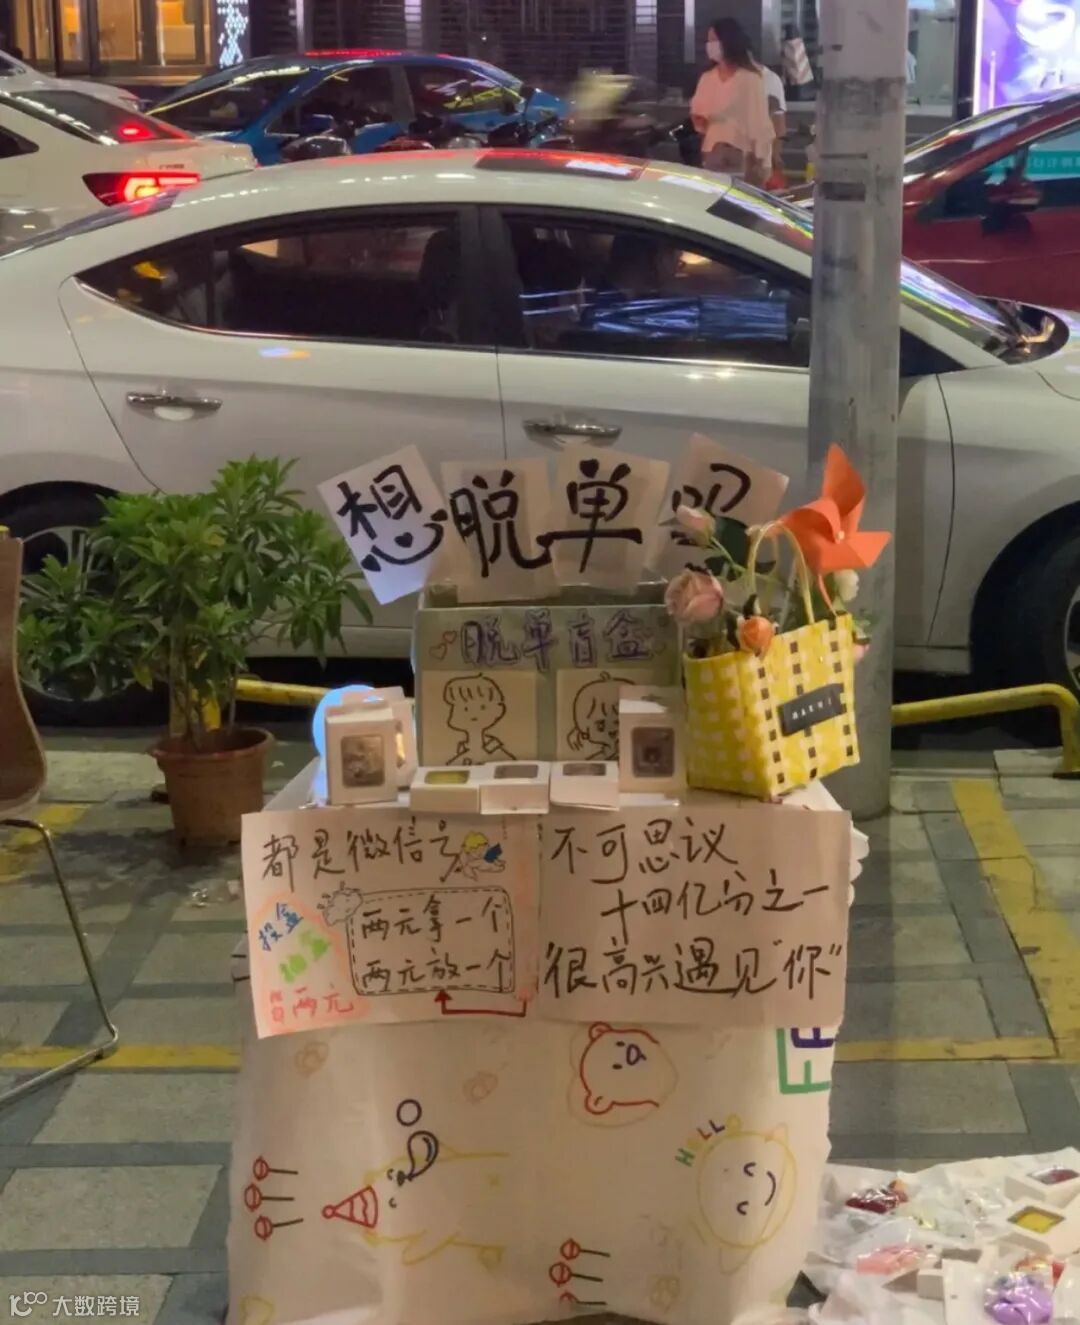 想脱单
脱单盲盒
都是微信号
投盒
抽盒
均两元
两元拿一个
两元放一个
不可思议
十四亿分之一
很高兴遇见"你"
HeLLO
大数跨境